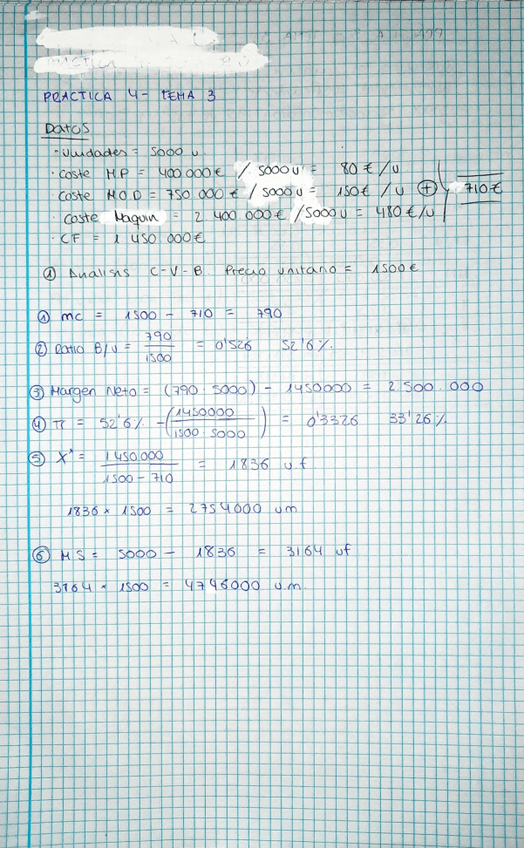 PRACTICA 4 - TEMA 3
DATOS
· Unidades = 5000 u
· Coste M.P = 400 000 € / 5000 u = 80 € / u
· Coste M.O.D = 750 000 € / 5000 u = 150 € / u (+) 710 €
· Coste Maquin = 2 400 000 € / 5000 u = 480 € / u
· CF = 1 450 000 €
① Analisis C-V-B Precio unitario = 1500 €
① mc = 1500 - 710 = 790
② Ratio B/V = 790/1500 = 0'526 52'6%
③ Margen Neto = (790 · 5000) - 1450000 = 2 500.000
④ π = 52'6% - (1450000/1500·5000) = 0'3326 33'26%
⑤ X* = 1 450 000/1500 - 710 = 1836 u.f
1836 × 1500 = 2754000 um
⑥ MS = 5000 - 1836 = 3164 uf
3164 × 1500 = 4746000 u.m.